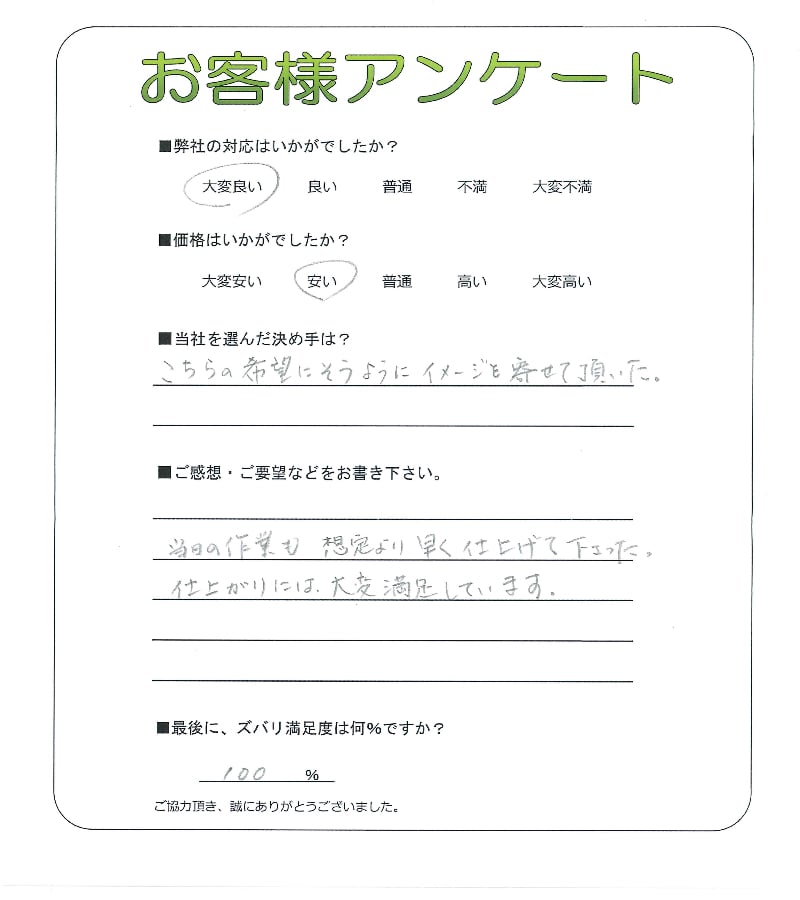 お客様アンケート
■弊社の対応はいかがでしたか？
大変良い 良い 普通 不満 大変不満
■価格はいかがでしたか？
大変安い 安い 普通 高い 大変高い
■当社を選んだ決め手は？
こちらの希望にそうようにイメージを寄せて頂いた。
■ご感想・ご要望などをお書き下さい。
当日の作業も 想定より早く仕上げて下さった。
仕上がりには、大変満足しています。
■最後に、ズバリ満足度は何%ですか？
100 %
ご協力頂き、誠にありがとうございました。